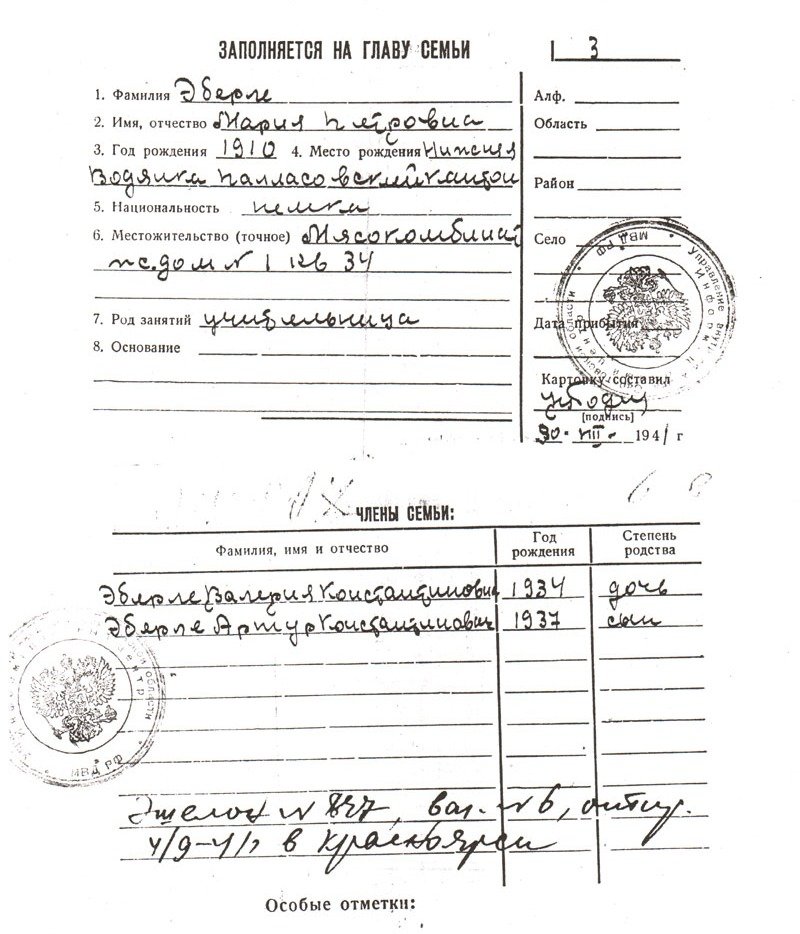 ЗАПОЛНЯЕТСЯ НА ГЛАВУ СЕМЬИ
3
1. Фамилия Эберле
2. Имя, отчество Мария Петровна
3. Год рождения 1910 4. Место рождения Нижняя
Водянка Палласовский кантон
5. Национальность немка
6. Местожительство (точное) Мясокомбинат
дом № 1 кв 34
7. Род занятий учительница
8. Основание
Алф.
Область
Район
Село
Дата прибытия
Карточку составил
[подпись]
30. VIII 1941 г
МВД РФ
Управление
ЧЛЕНЫ СЕМЬИ:
Фамилия, имя и отчество
Год рождения
Степень родства
Эберле Валерия Константиновна 1934 дочь
Эберле Артур Константинович 1937 сын
МВД РФ
Эшелон № 847, ваг. № 6, отпр.
в Красноярск
Особые отметки: